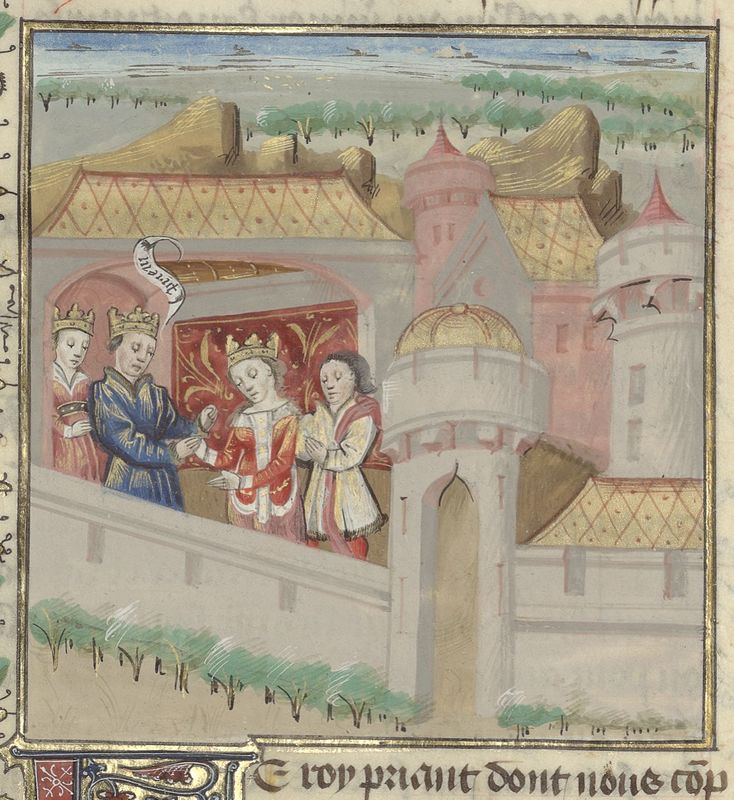 E roy priant dont nous cōp